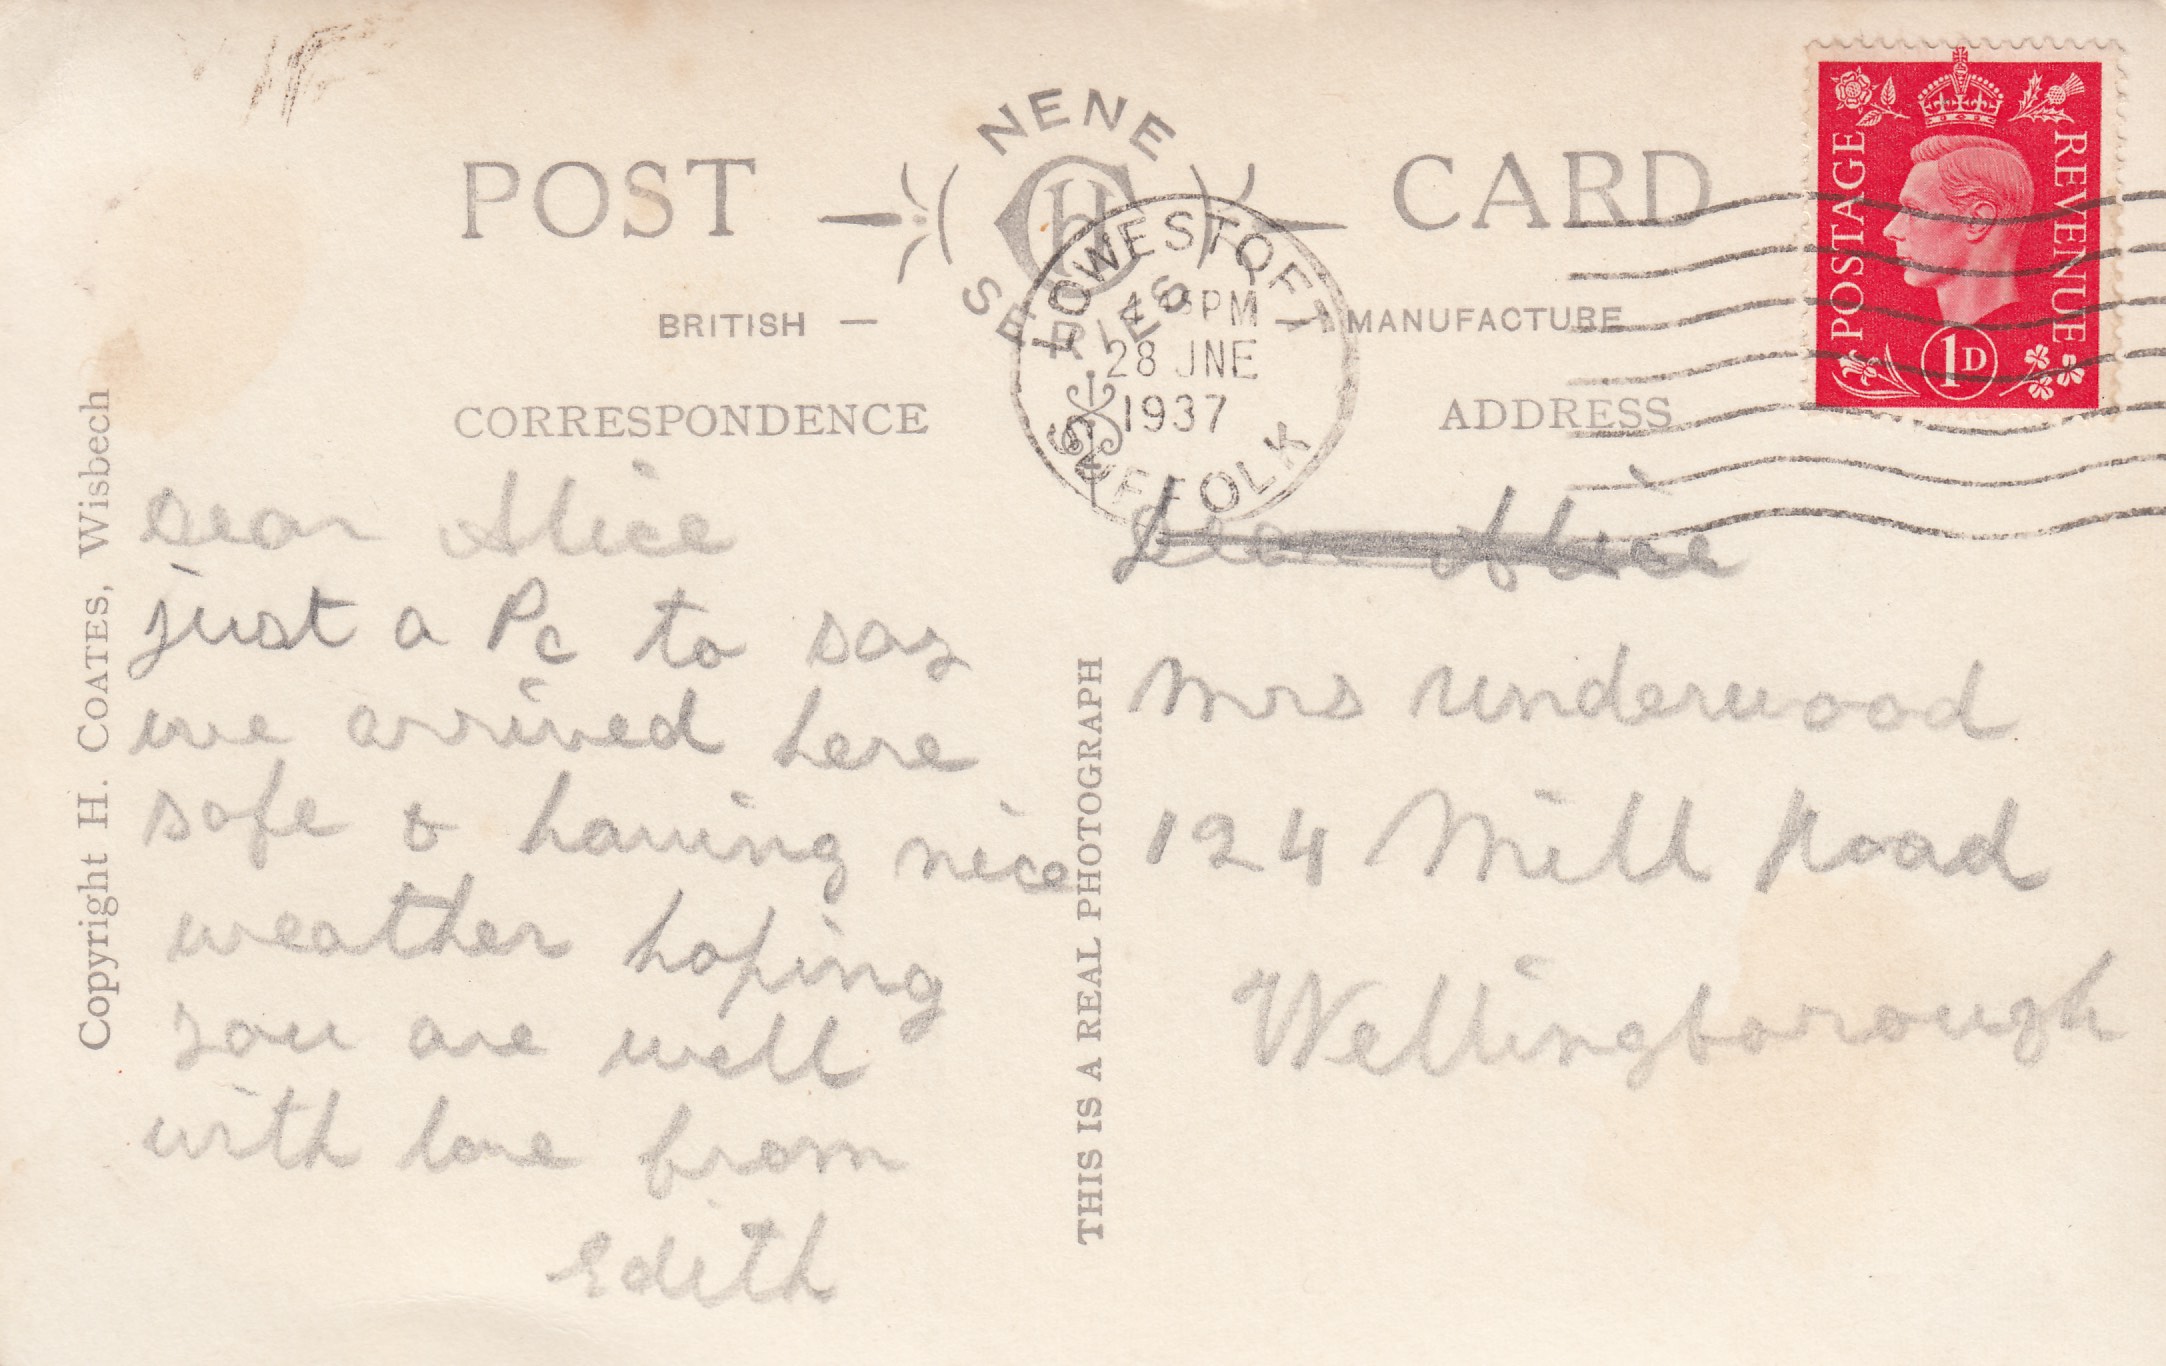 NENE
POST CARD
SERIES
BRITISH — — MANUFACTURE
CORRESPONDENCE
ADDRESS
LOWESTOFT
PM
28 JNE
1937
SUFFOLK
POSTAGE
REVENUE
1D
Copyright H. COATES, Wisbech
Dear Alice
just a Pc to say
we arrived here
safe & having nice
weather hoping
you are well
with love from
Edith
THIS IS A REAL PHOTOGRAPH
Dear Alice
Mrs Underwood
124 Mill Road
Wellingborough